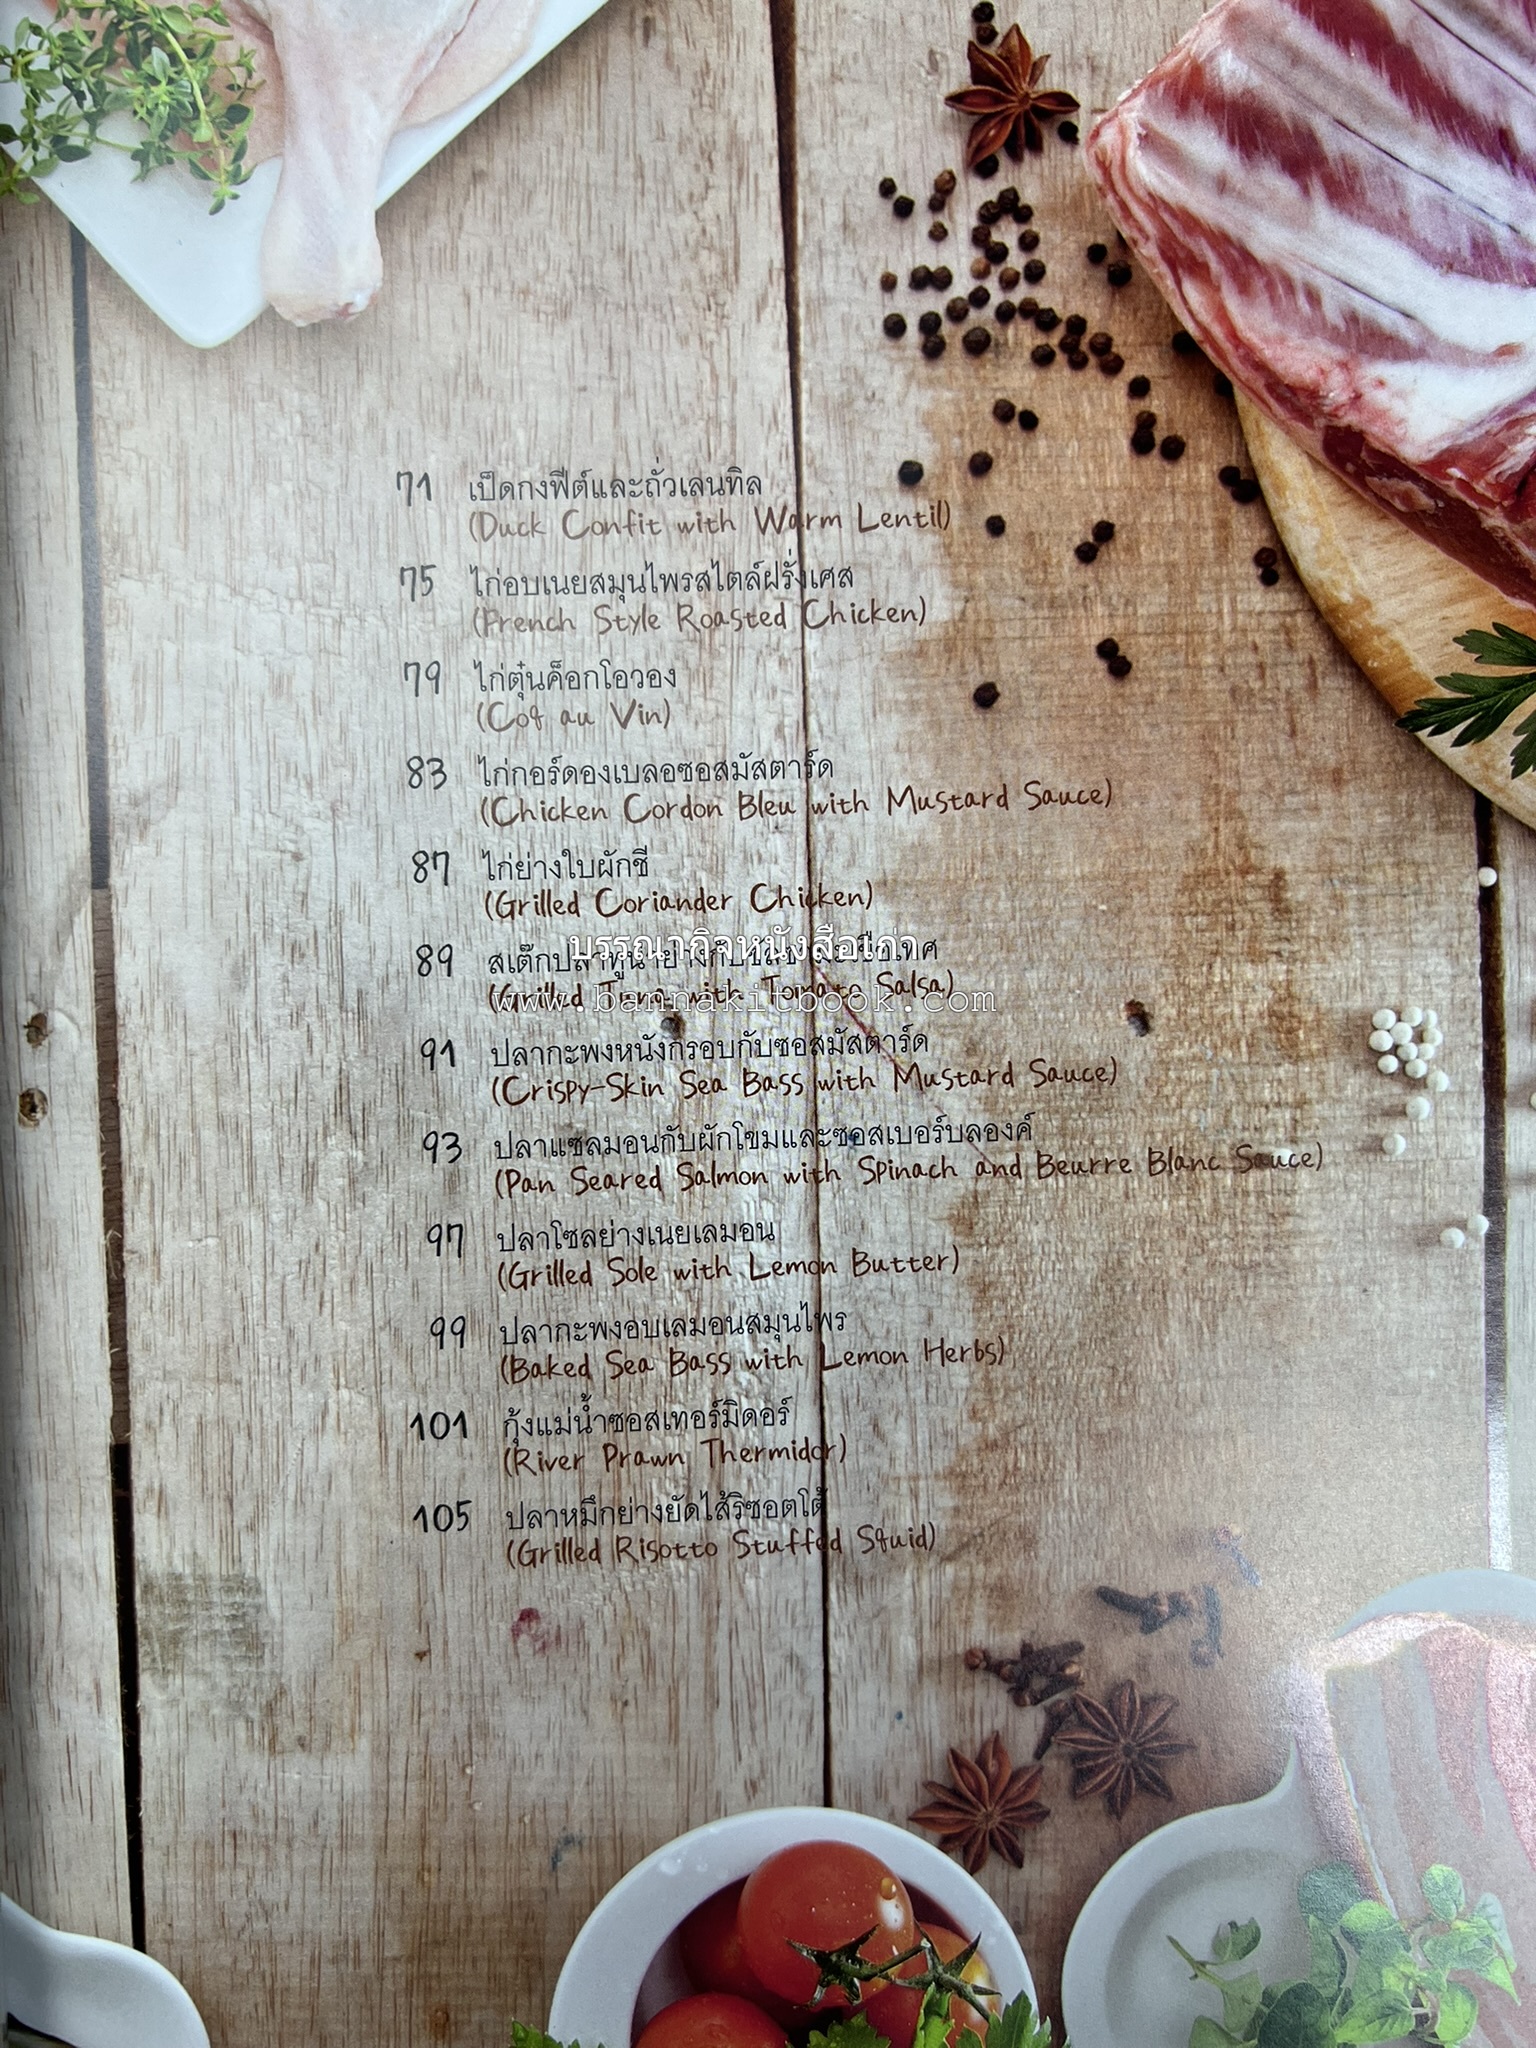 71 เป็ดกงฟีต์และถั่วเลนทิล
(Duck Confit with Warm Lentil)
75 ไก่อบเนยสมุนไพรสไตล์ฝรั่งเศส
(French Style Roasted Chicken)
79 ไก่ตุ๋นค็อกโอวอง
(Coq au Vin)
83 ไก่กอร์ดองเบลอซอสมัสตาร์ด
(Chicken Cordon Bleu with Mustard Sauce)
87 ไก่ย่างใบผักชี
(Grilled Coriander Chicken)
บรรณากิจหนังสือเก่า
89 สเต๊กปลาทูน่าย่างกับซัลซามะเขือเทศ
(Grilled Tuna with Tomato Salsa)
www.bannakitbook.com
91 ปลากะพงหนังกรอบกับซอสมัสตาร์ด
(Crispy-Skin Sea Bass with Mustard Sauce)
93 ปลาแซลมอนกับผักโขมและซอสเบอร์บลองค์
(Pan Seared Salmon with Spinach and Beurre Blanc Sauce)
97 ปลาโซลย่างเนยเลมอน
(Grilled Sole with Lemon Butter)
99 ปลากะพงอบเลมอนสมุนไพร
(Baked Sea Bass with Lemon Herbs)
101 กุ้งแม่น้ำซอสเทอร์มิดอร์
(River Prawn Thermidor)
105 ปลาหมึกย่างยัดไส้ริซอตโต้
(Grilled Risotto Stuffed Squid)